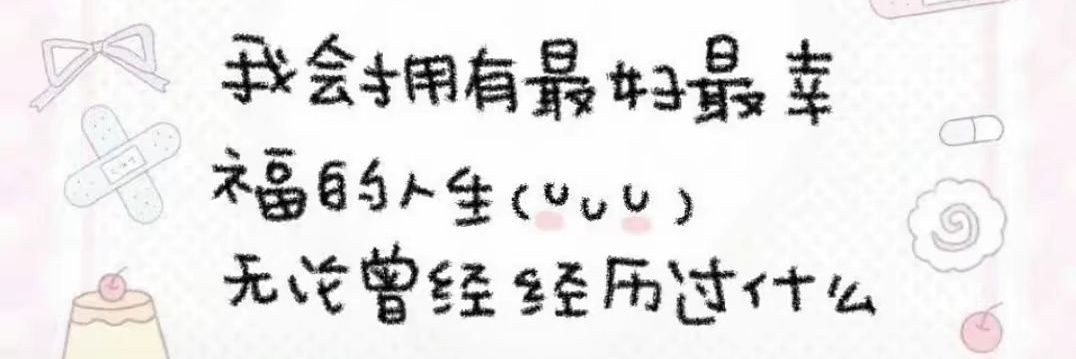 我会拥有最好最幸
福的人生(ᴗ ᴗ ᴗ)
无论曾经经历过什么